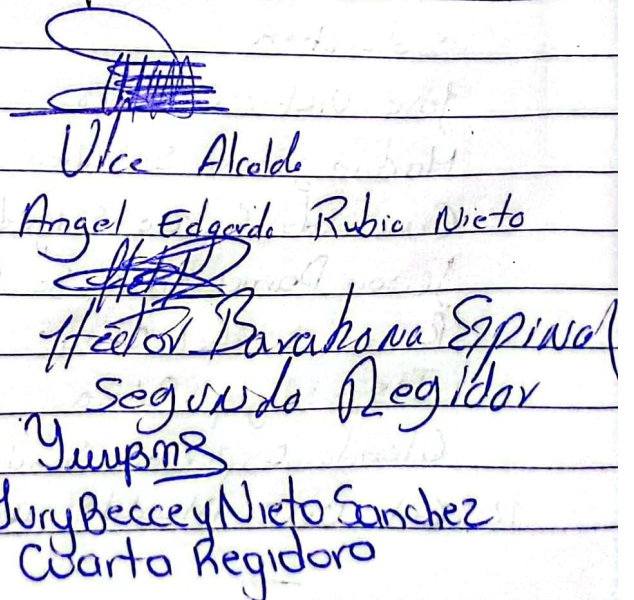 Vice Alcalde
Angel Edgardo Rubio Nieto
Héctor Barahona Espinal
Segundo Regidor
Yury Beccey Nieto Sanchez
Cuarta Regidora